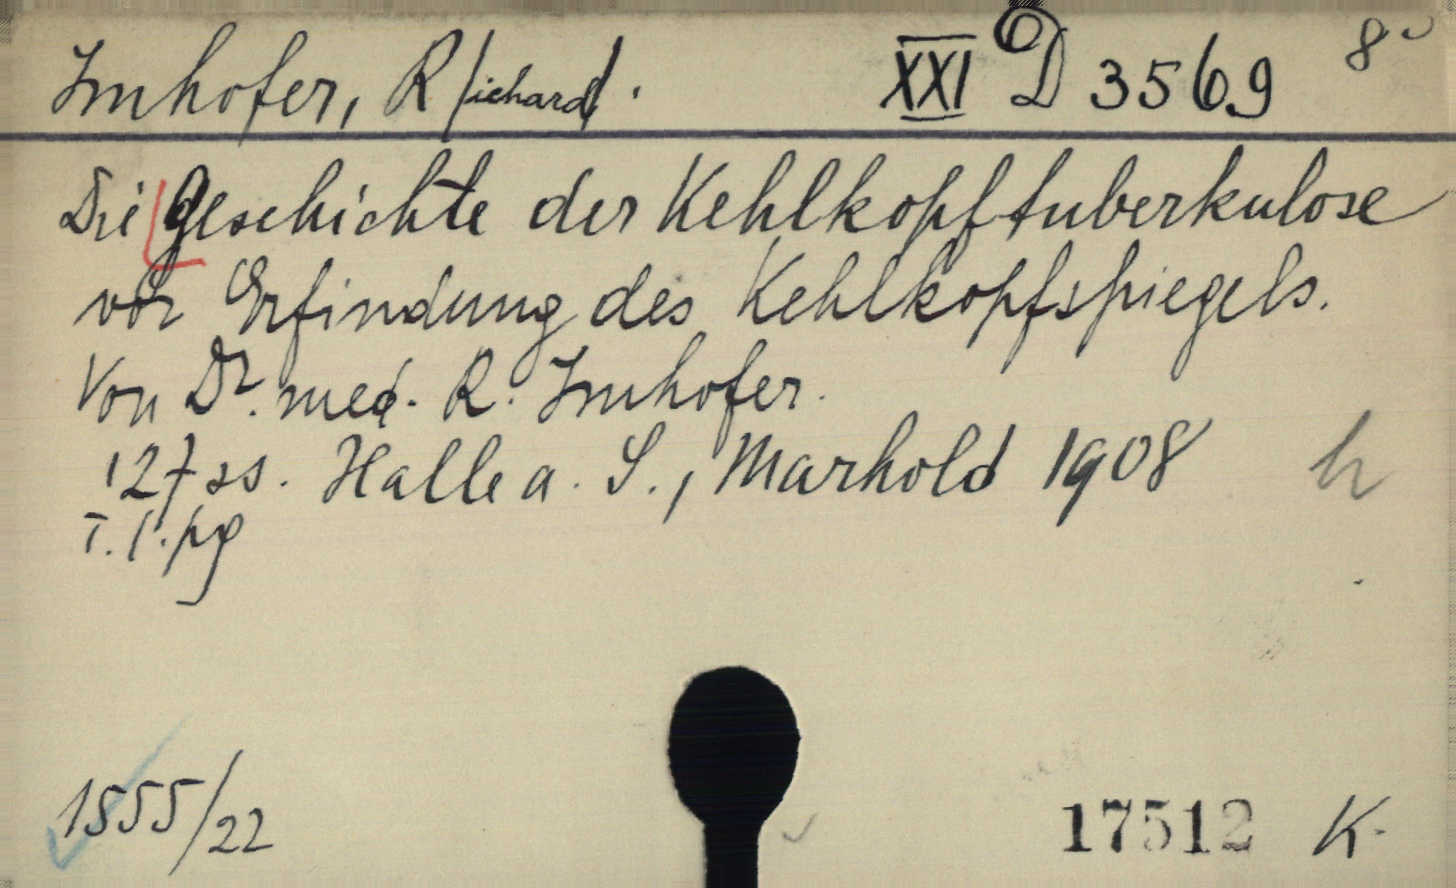 Imhofer, R/ichard/. XXI D 3569 8°
Die Geschichte der Kehlkopftuberkulose
vor Erfindung des Kehlkopfspiegels.
Von Dr. med. R. Imhofer.
127 ss. Halle a. S., Marhold 1908 h
1555/22 17512 K.